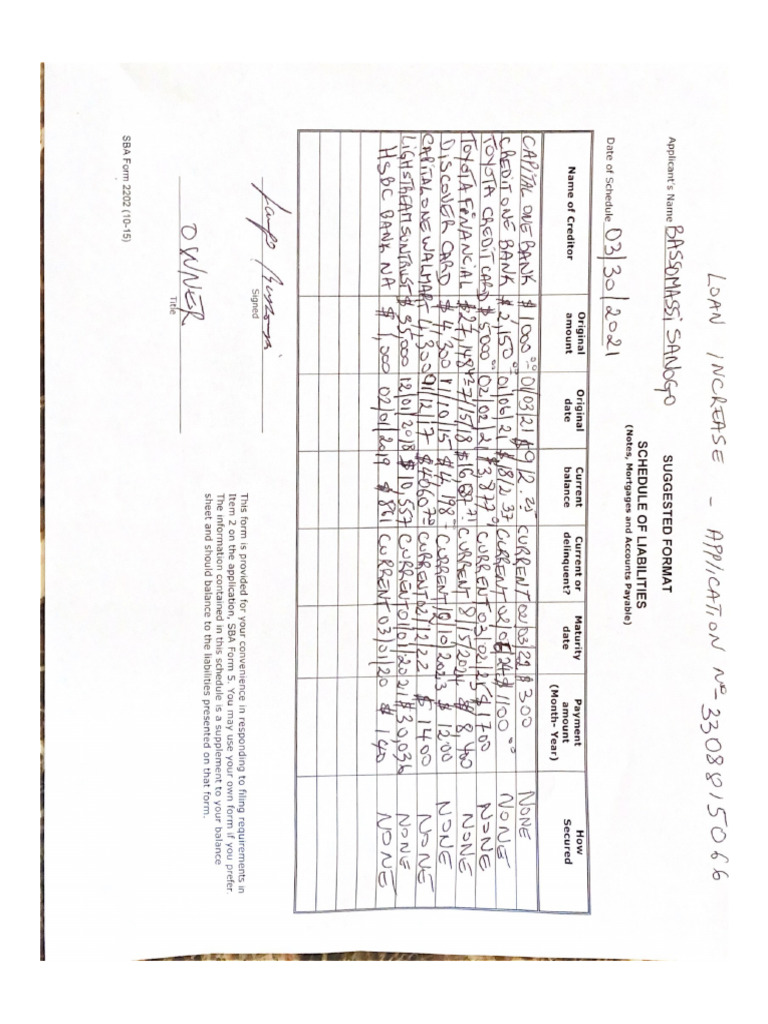 LOAN INCREASE - APPLICATION Nº- 3308815066
SUGGESTED FORMAT
Applicant's Name BASSOMASSi SANOGO
SCHEDULE OF LIABILITIES
(Notes, Mortgages and Accounts Payable)
Date of Schedule 03/30/2021
Name of Creditor Original amount Original date Current balance Current or delinquent? Maturity date Payment amount (Month- Year) How Secured
CAPITAL ONE BANK $1000.00 01/03/21 $912.25 CURRENT 02/03/22 $300 NONE
CREDIT ONE BANK $2,150.00 01/06/21 $1812.37 CURRENT $1100.00 NONE
TOYOTA CREDIT CARD $5000 02/02/21 $3,877 CURRENT 03/02/25 $1700 NONE
TOYOTA FINANCIAL 7/15/18 CURRENT 8/15/2024 $8,400 NONE
DISCOVER CARD $4,300 11/10/15 $4,198 CURRENT $1200 NONE
CAPITAL ONE WALMART CURRENT 02/12/22 $1400 NONE
LIGHSTREAM SUNTRUST $35,000 12/01/2018 $10,557 CURRENT 01/01/2021 $30,036 NONE
HSBC BANK NA $1,000 02/01/2019 $861 CURRENT 03/01/20 $140 NONE
Signed
OWNER
Title
This form is provided for your convenience in responding to filing requirements in
Item 2 on the application, SBA Form 5. You may use your own form if you prefer.
The information contained in this schedule is a supplement to your balance
sheet and should balance to the liabilities presented on that form.
SBA Form 2202 (10-15)